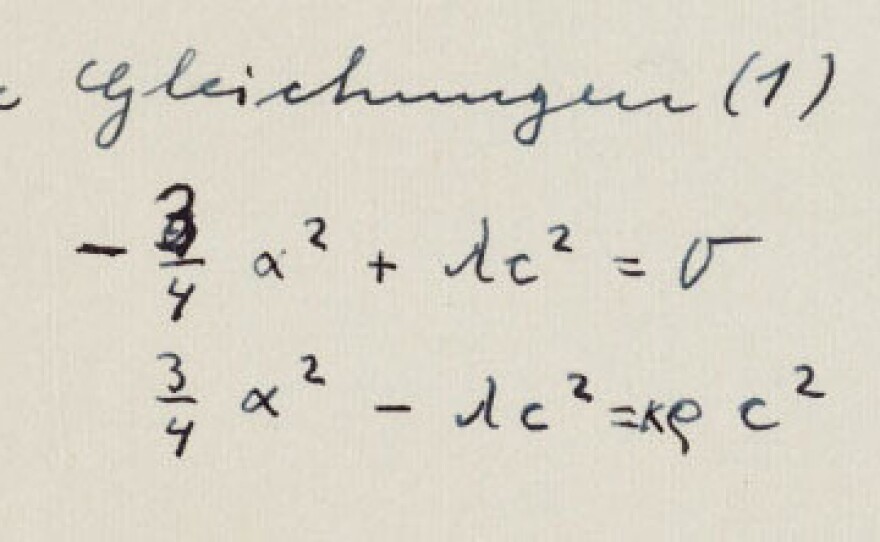 Gleichungen (1)
- 3/4 α² + λc² = 0
3/4 α² - λc² = κρ c²